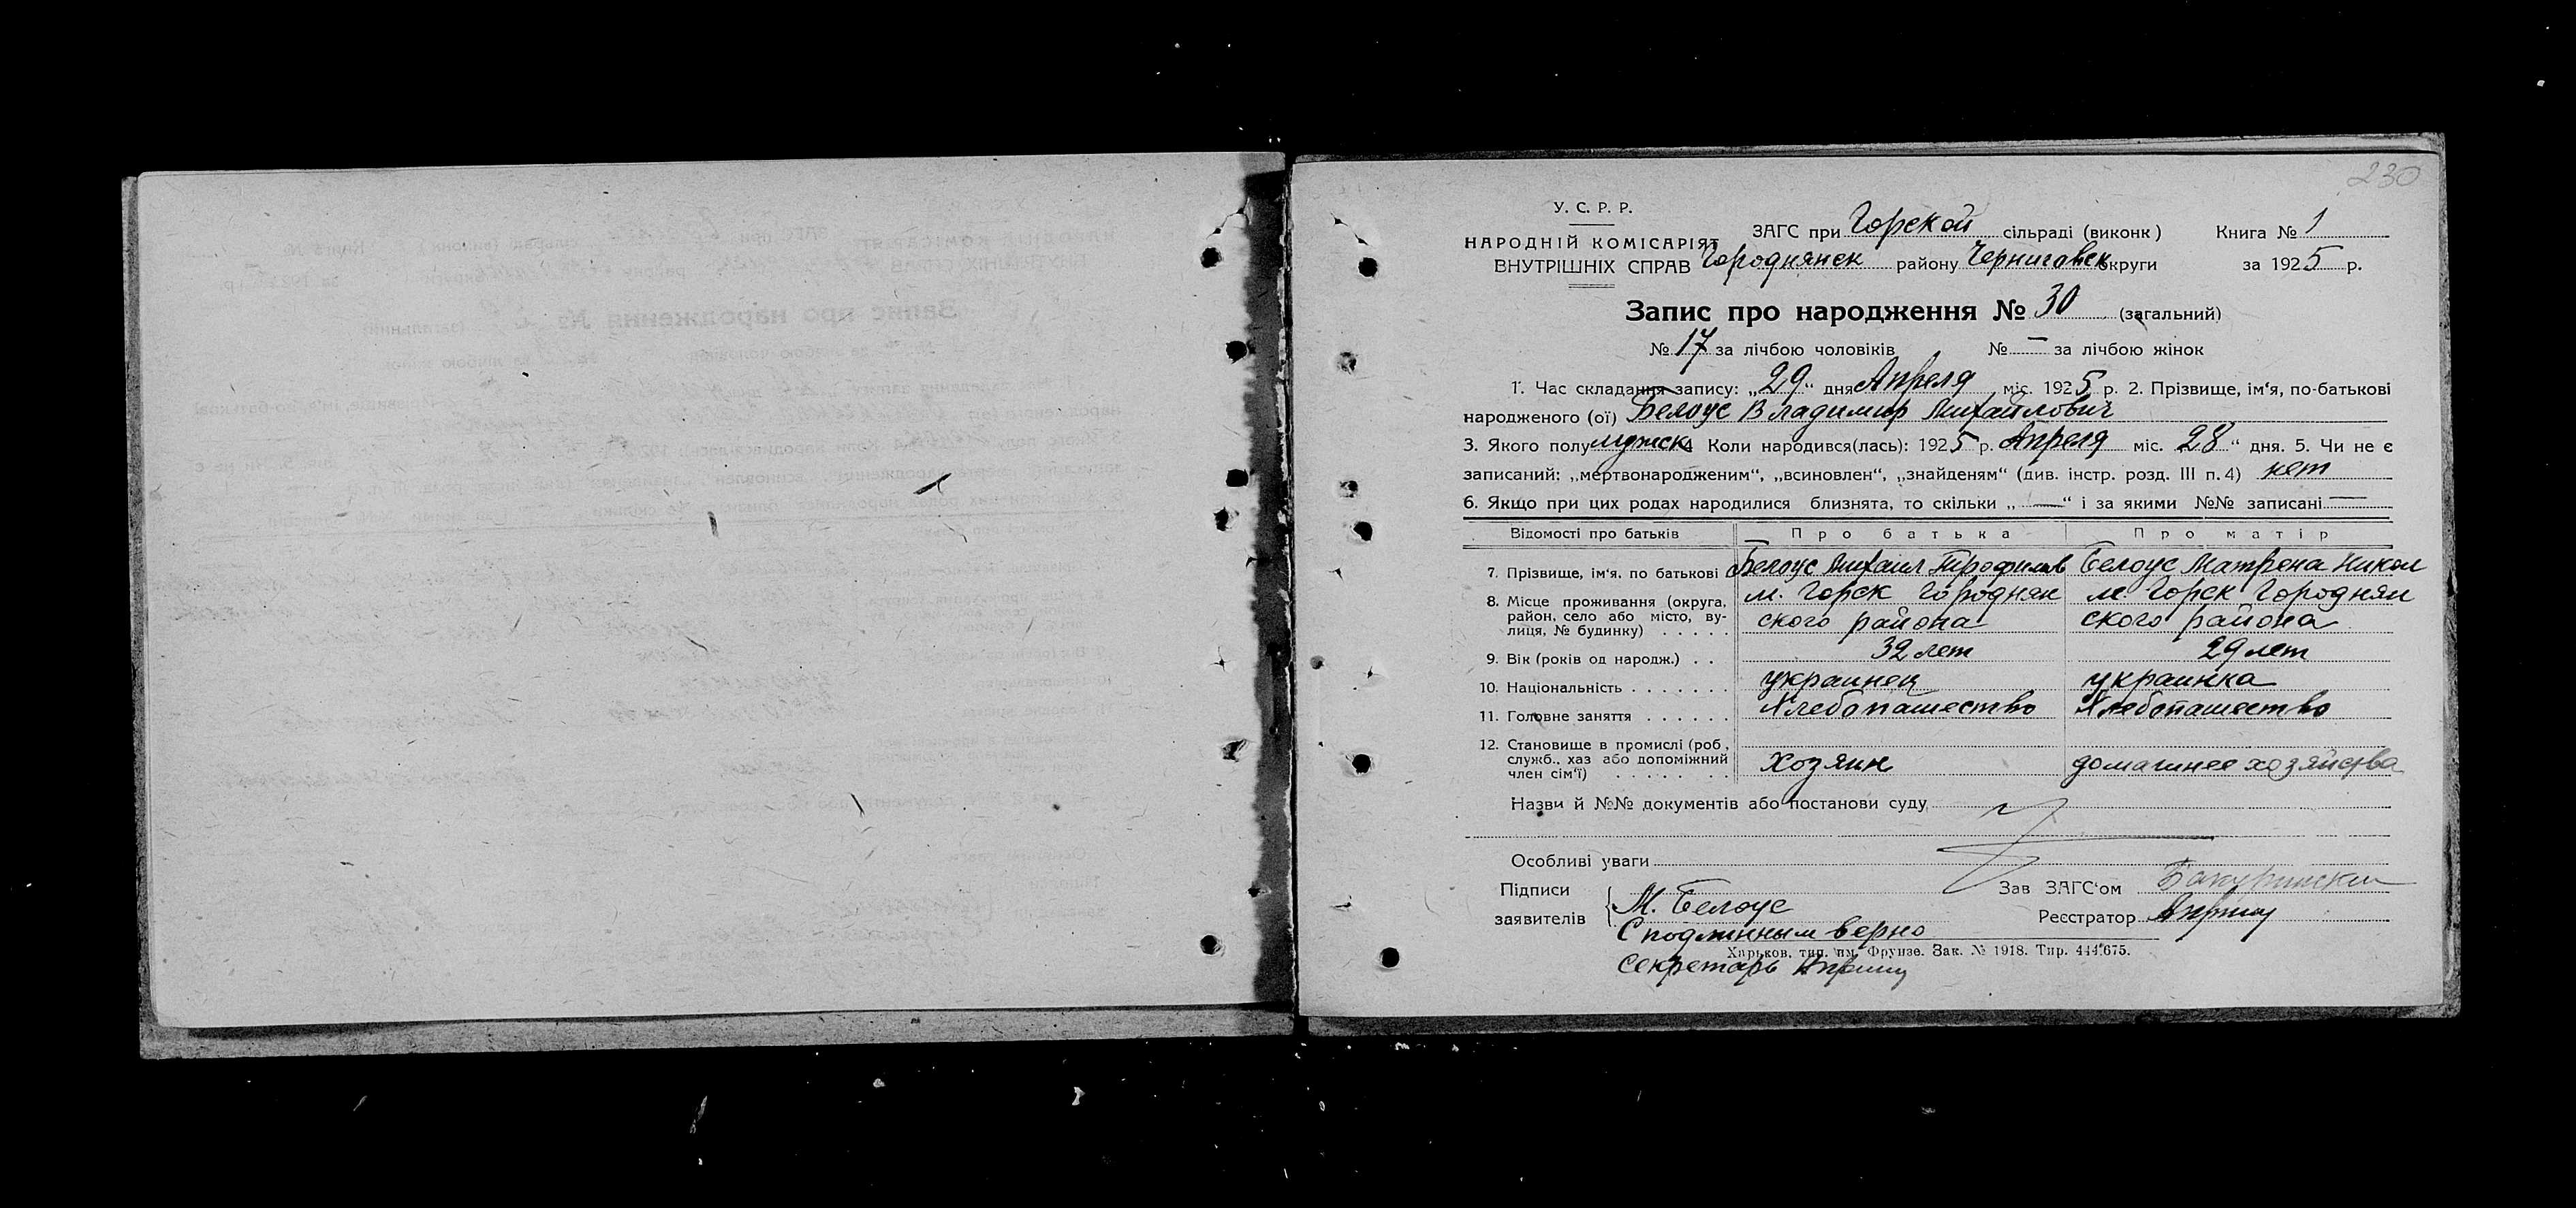 230
У. С. Р. Р.
НАРОДНІЙ КОМІСАРІЯТ
ВНУТРІШНІХ СПРАВ
ЗАГС при Горской сільраді (виконк)
Городнянск району Черниговск округи
Книга № 1
за 1925 р.
Запис про народження № 30 (загальний)
№ 17 за лічбою чоловіків № — за лічбою жінок
1. Час складання запису: „29“ дня Апреля міс. 1925 р. 2. Прізвище, ім‘я, по-батькові
народженого (ої) Белоус Владимир Михайлович
3. Якого полу мужск 4 Коли народився(лась): 1925 р. Апреля міс. 28“ дня. 5. Чи не є
записаний: „мертвонародженим“, „всиновлен“, „знайденям“ (див. інстр. розд. III п. 4) нет
6. Якщо при цих родах народилися близнята, то скільки „—“ і за якими №№ записані —
Відомості про батьків Про батька Про матір
7. Прізвище, ім‘я, по батькові Белоус Михаил Трофимов Белоус Матрена Никол
8. Місце проживання (округа, район, село або місто, вулиця, № будинку) м. Горск Городнян м. Горск Городнян
ского района ского района
9. Вік (років од народж.) 32 лет 29 лет
10. Національність украинец украинка
11. Головне заняття Хлебопашество Хлебопашество
12. Становище в промислі (роб, служб., хаз або допоміжний член сім‘ї) Хозяин домашнее хозяйства
Назви й №№ документів або постанови суду
Особливі уваги
Підписи
заявителів
М. Белоус
Зав ЗАГС‘ом
Реєстратор
С подлинным верно
Харьков, тип. им. Фрунзе. Зак. № 1918. Тир. 444.675.
Секретарь